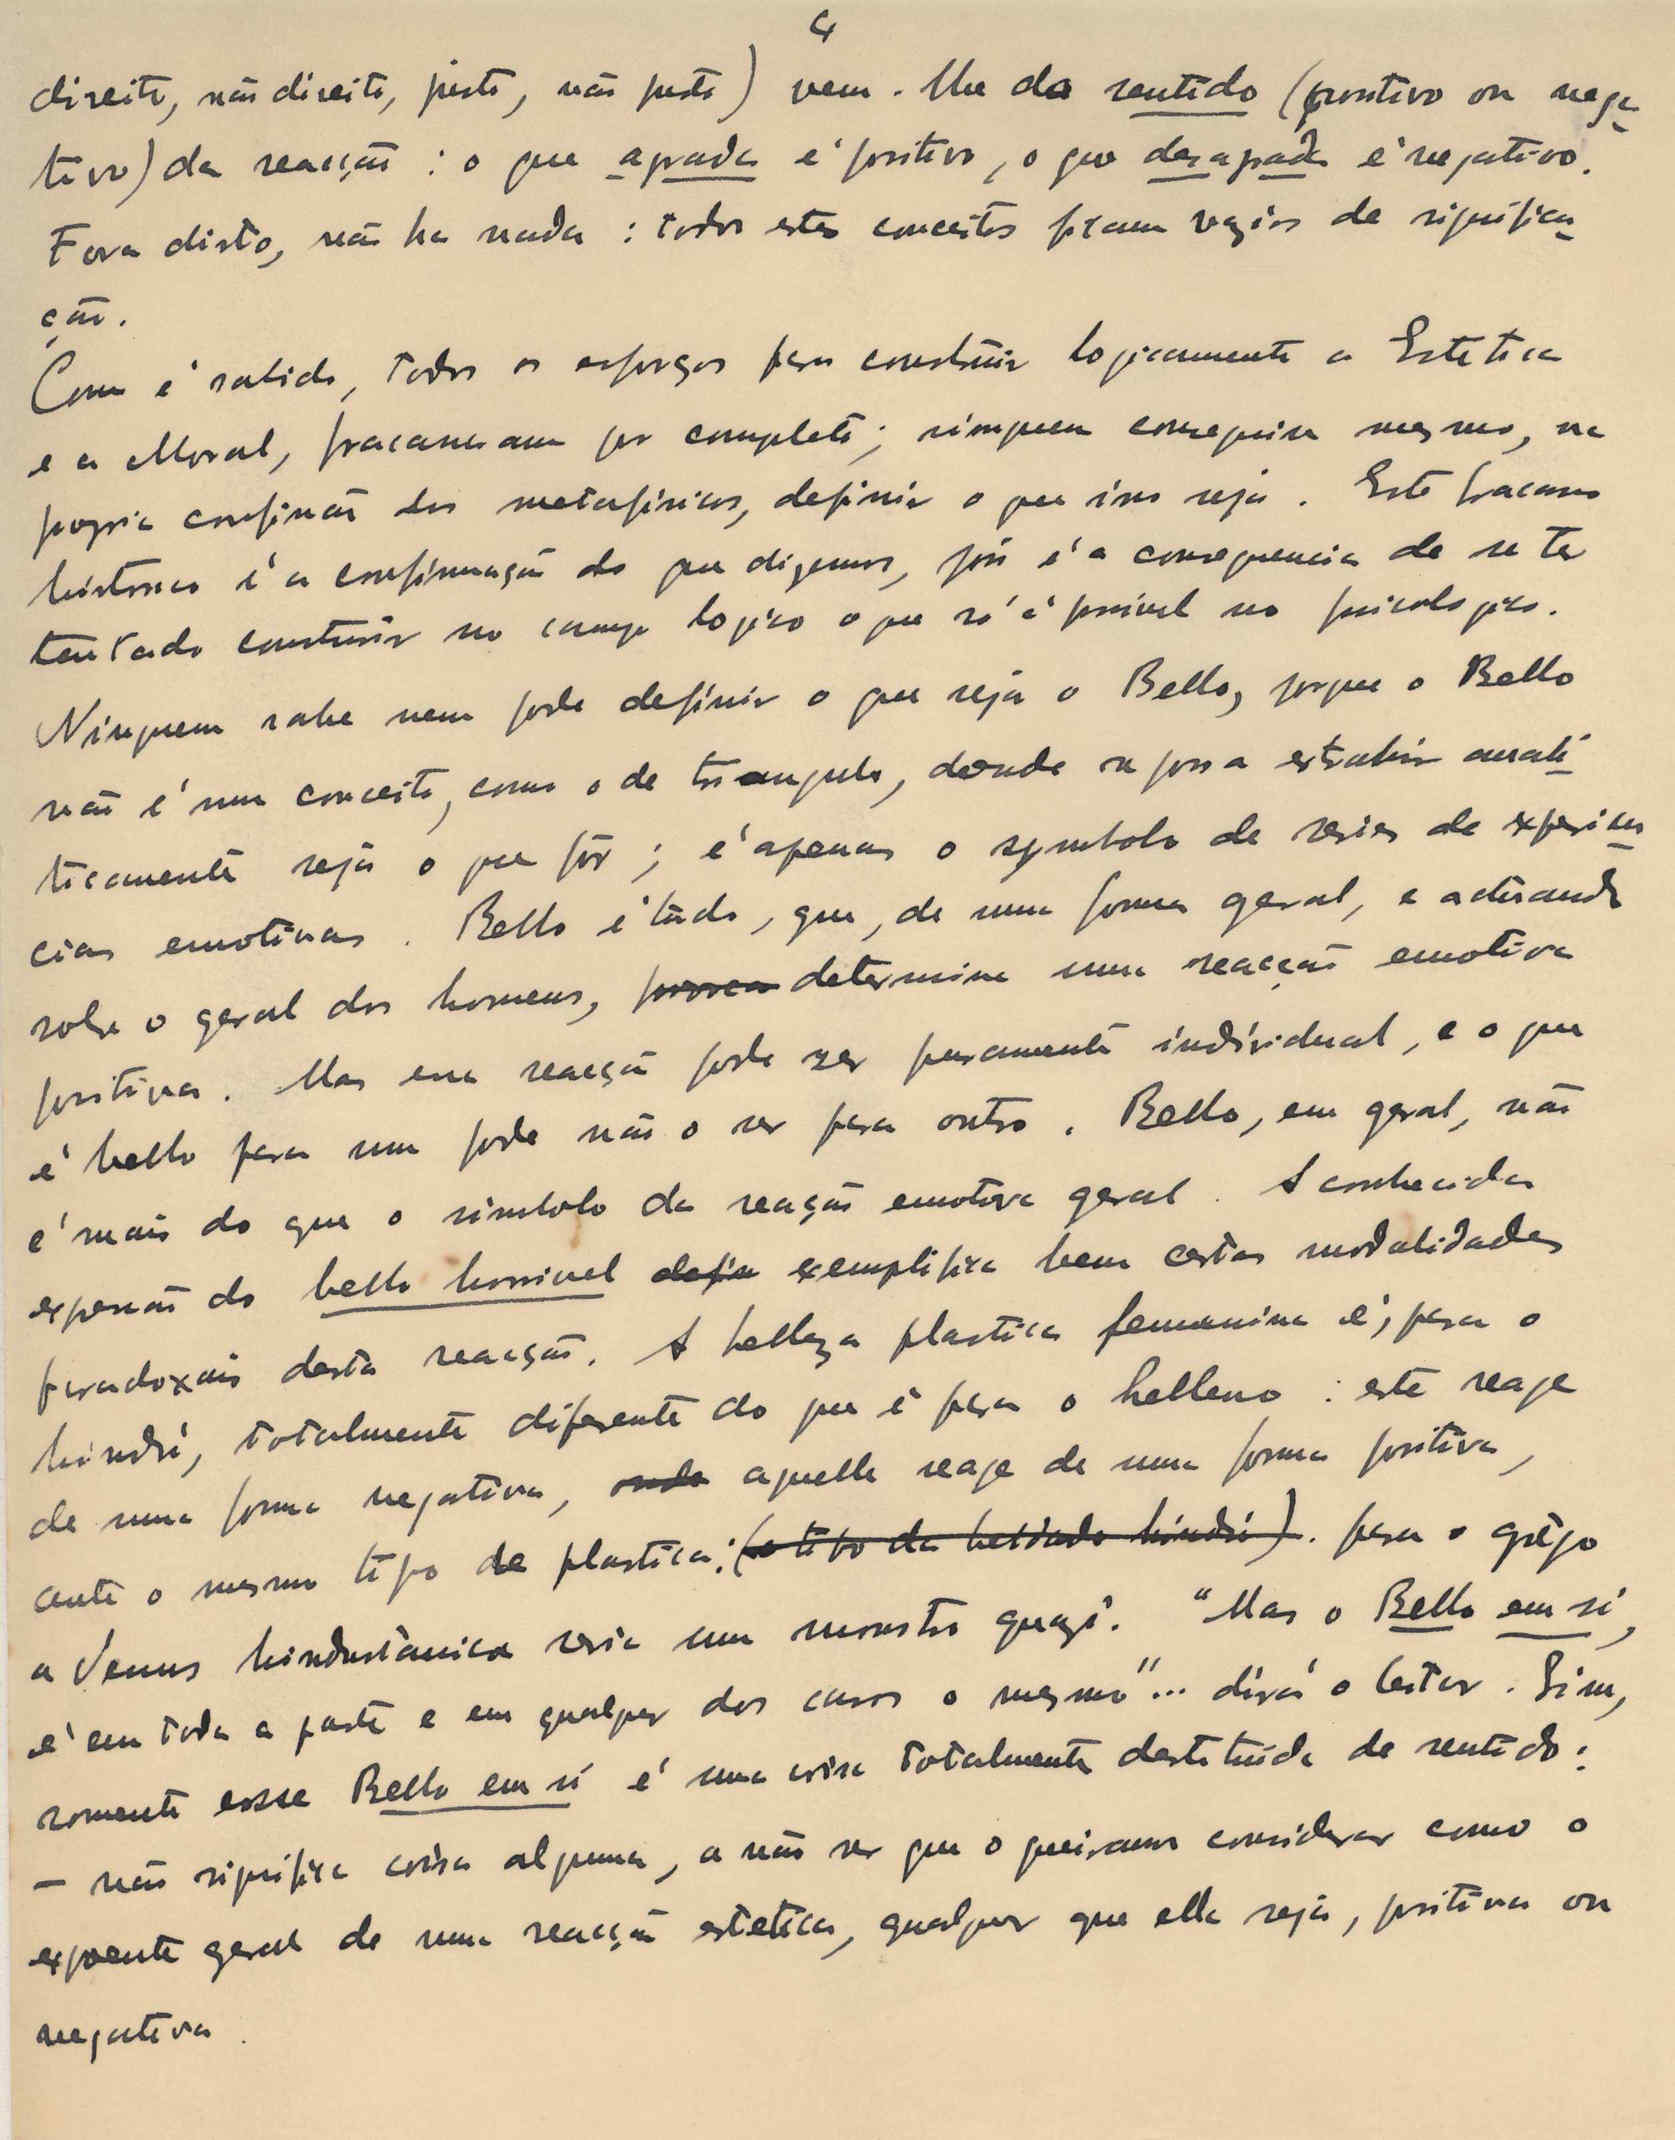 4
direito, não direito, justo, não justo) vem-lhe do sentido (positivo ou nega-
tivo) da reacção : o que agrada é positivo, o que desagrada é negativo.
Fora disto, não ha nada : todos estes conceitos ficam vazios de significa-
ção.
Como é sabido, todos os esforços para construir logicamente a Estetica
e a Moral, fracassaram por completo; ninguem conseguiu mesmo, na
propria confissão dos metafisicos, definir o que isso seja. Este fracasso
historico é a confirmação do que dizemos, pois é a consequencia de se ter
tentado construir no campo logico o que só é possivel no psicologico.
Ninguem sabe nem pode definir o que seja o Bello, porque o Bello
não é um conceito, como o de triangulo, donde se possa extrahir anali-
ticamente seja o que fôr ; é apenas o symbolo de series de experien-
cias emotivas. Bello é tudo, que, de uma forma geral, e actuando
sobre o geral dos homens, provoca determina uma reacção emotiva
positiva. Mas essa reacção pode ser puramente individual, e o que
é bello para um pode não o ser para outro. Bello, em geral, não
é mais do que o simbolo da reação emotiva geral. A conhecida
expressão do bello horrivel defin exemplifica bem certas modalidades
paradoxais desta reacção. A belleza plastica femenina é, para o
hindú, totalmente diferente do que é para o helleno : este reage
de uma forma negativa, onde aquelle reage de uma forma positiva,
ante o mesmo tipo de plastica: (o tipo da beldade hindú). para o grêgo
a Venus hindustânica seria um monstro quazi. "Mas o Bello em si,
é em toda a parte e em qualquer dos casos o mesmo"... dirá o leitor. Sim,
somente esse Bello em si é uma coisa totalmente destituida de sentido:
— não significa coisa alguma, a não ser que o queiramos considerar como o
expoente geral de uma reacção estetica, qualquer que ella seja, positiva ou
negativa.